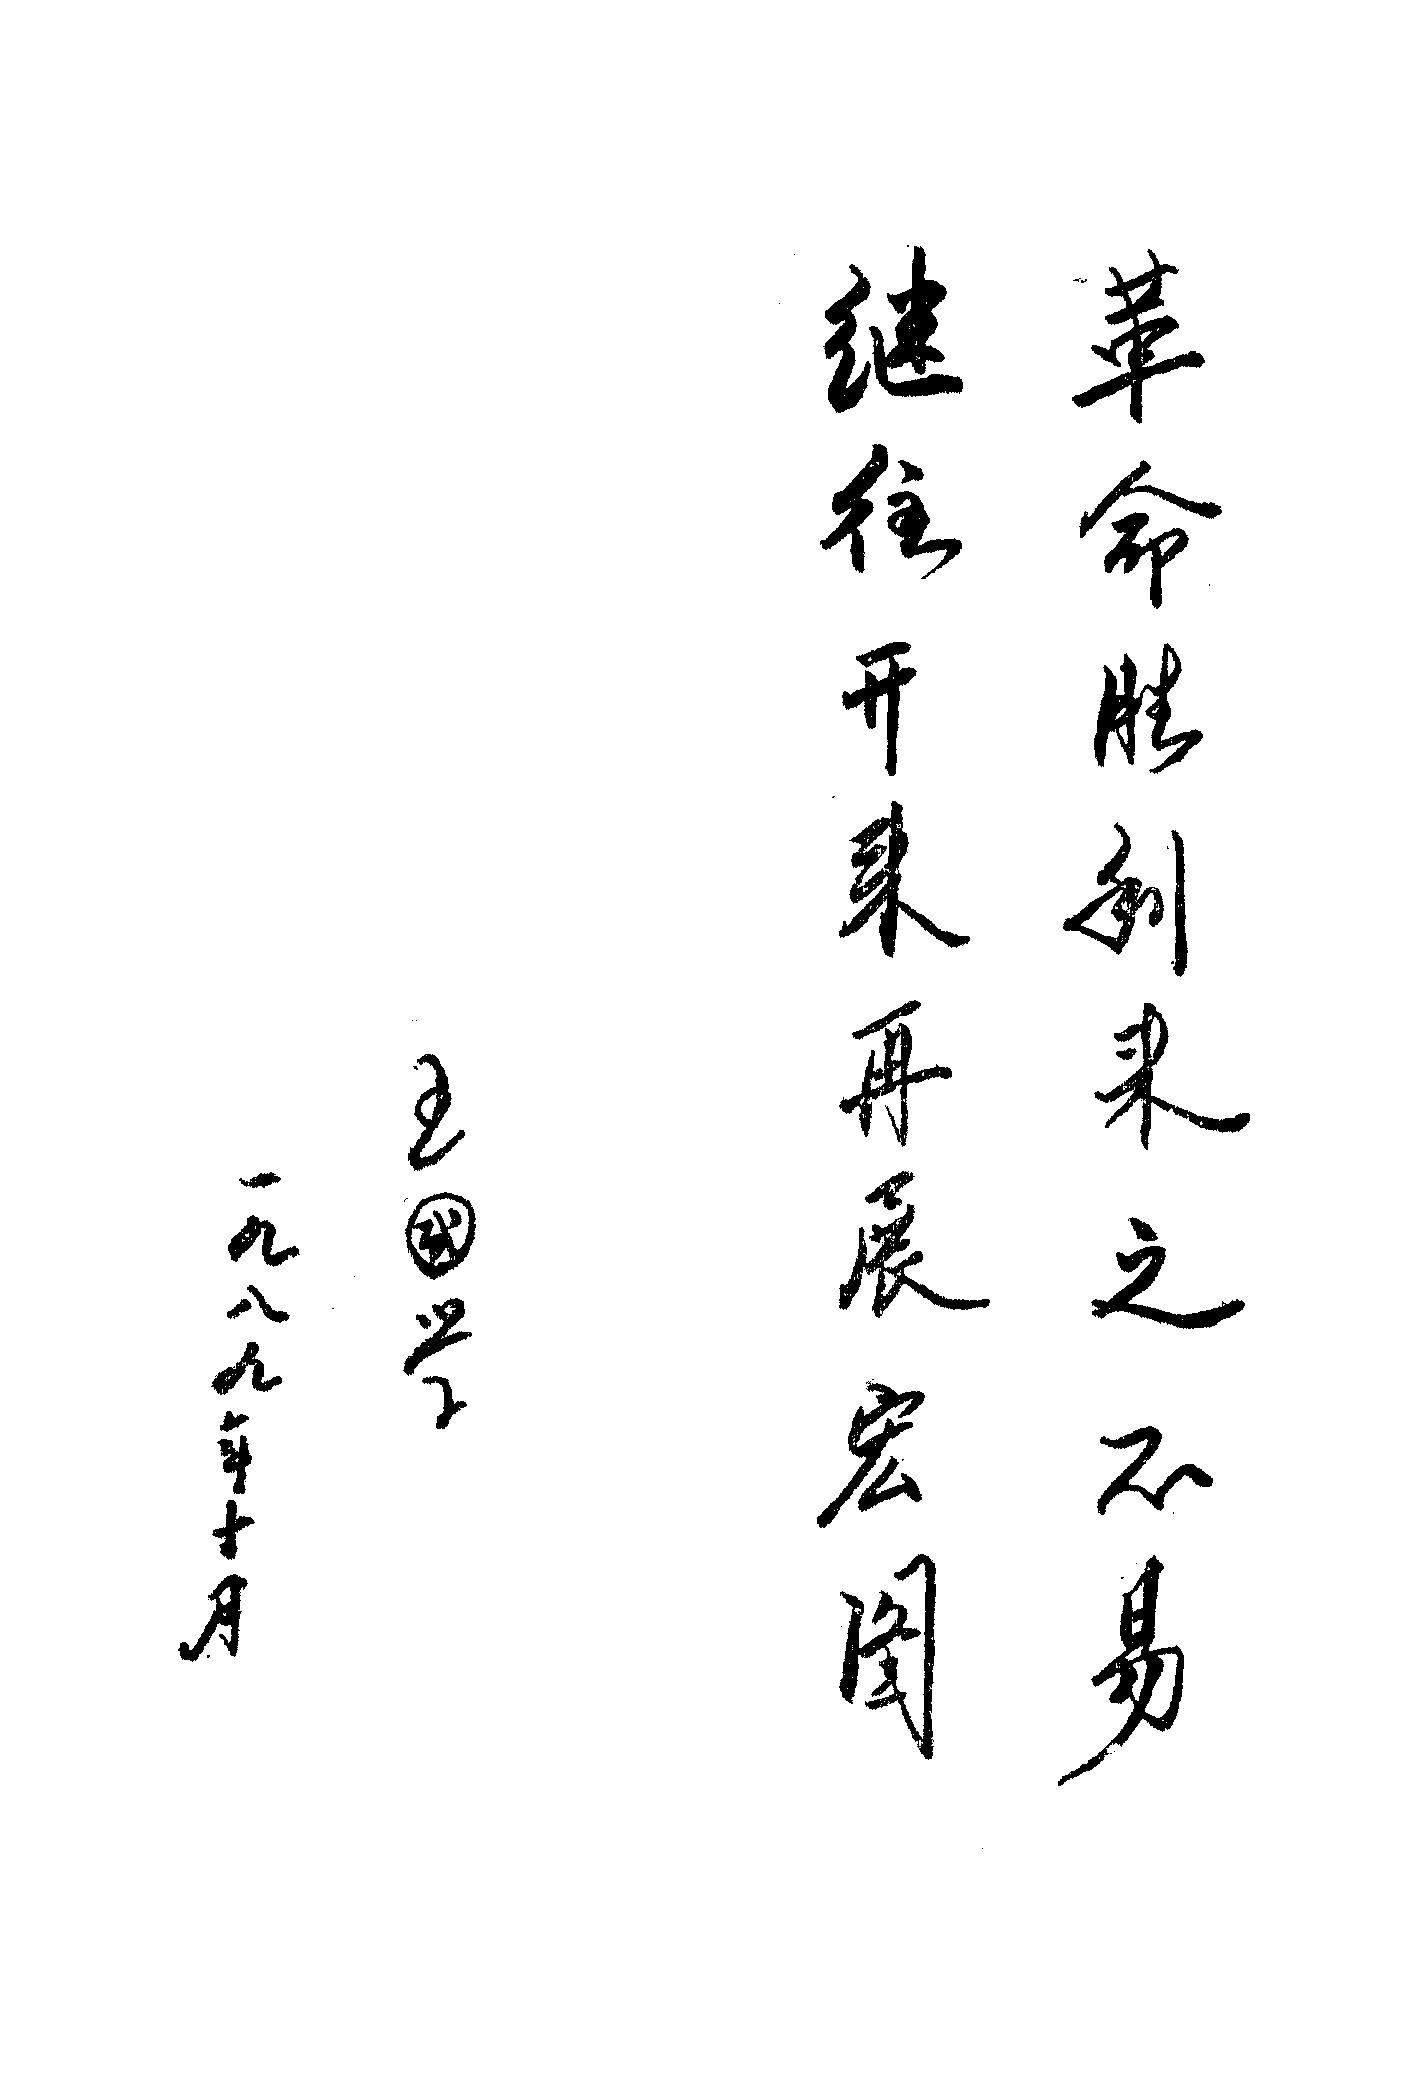 革命胜利来之不易
继往开来再展宏图
王國学
一九八九年十月